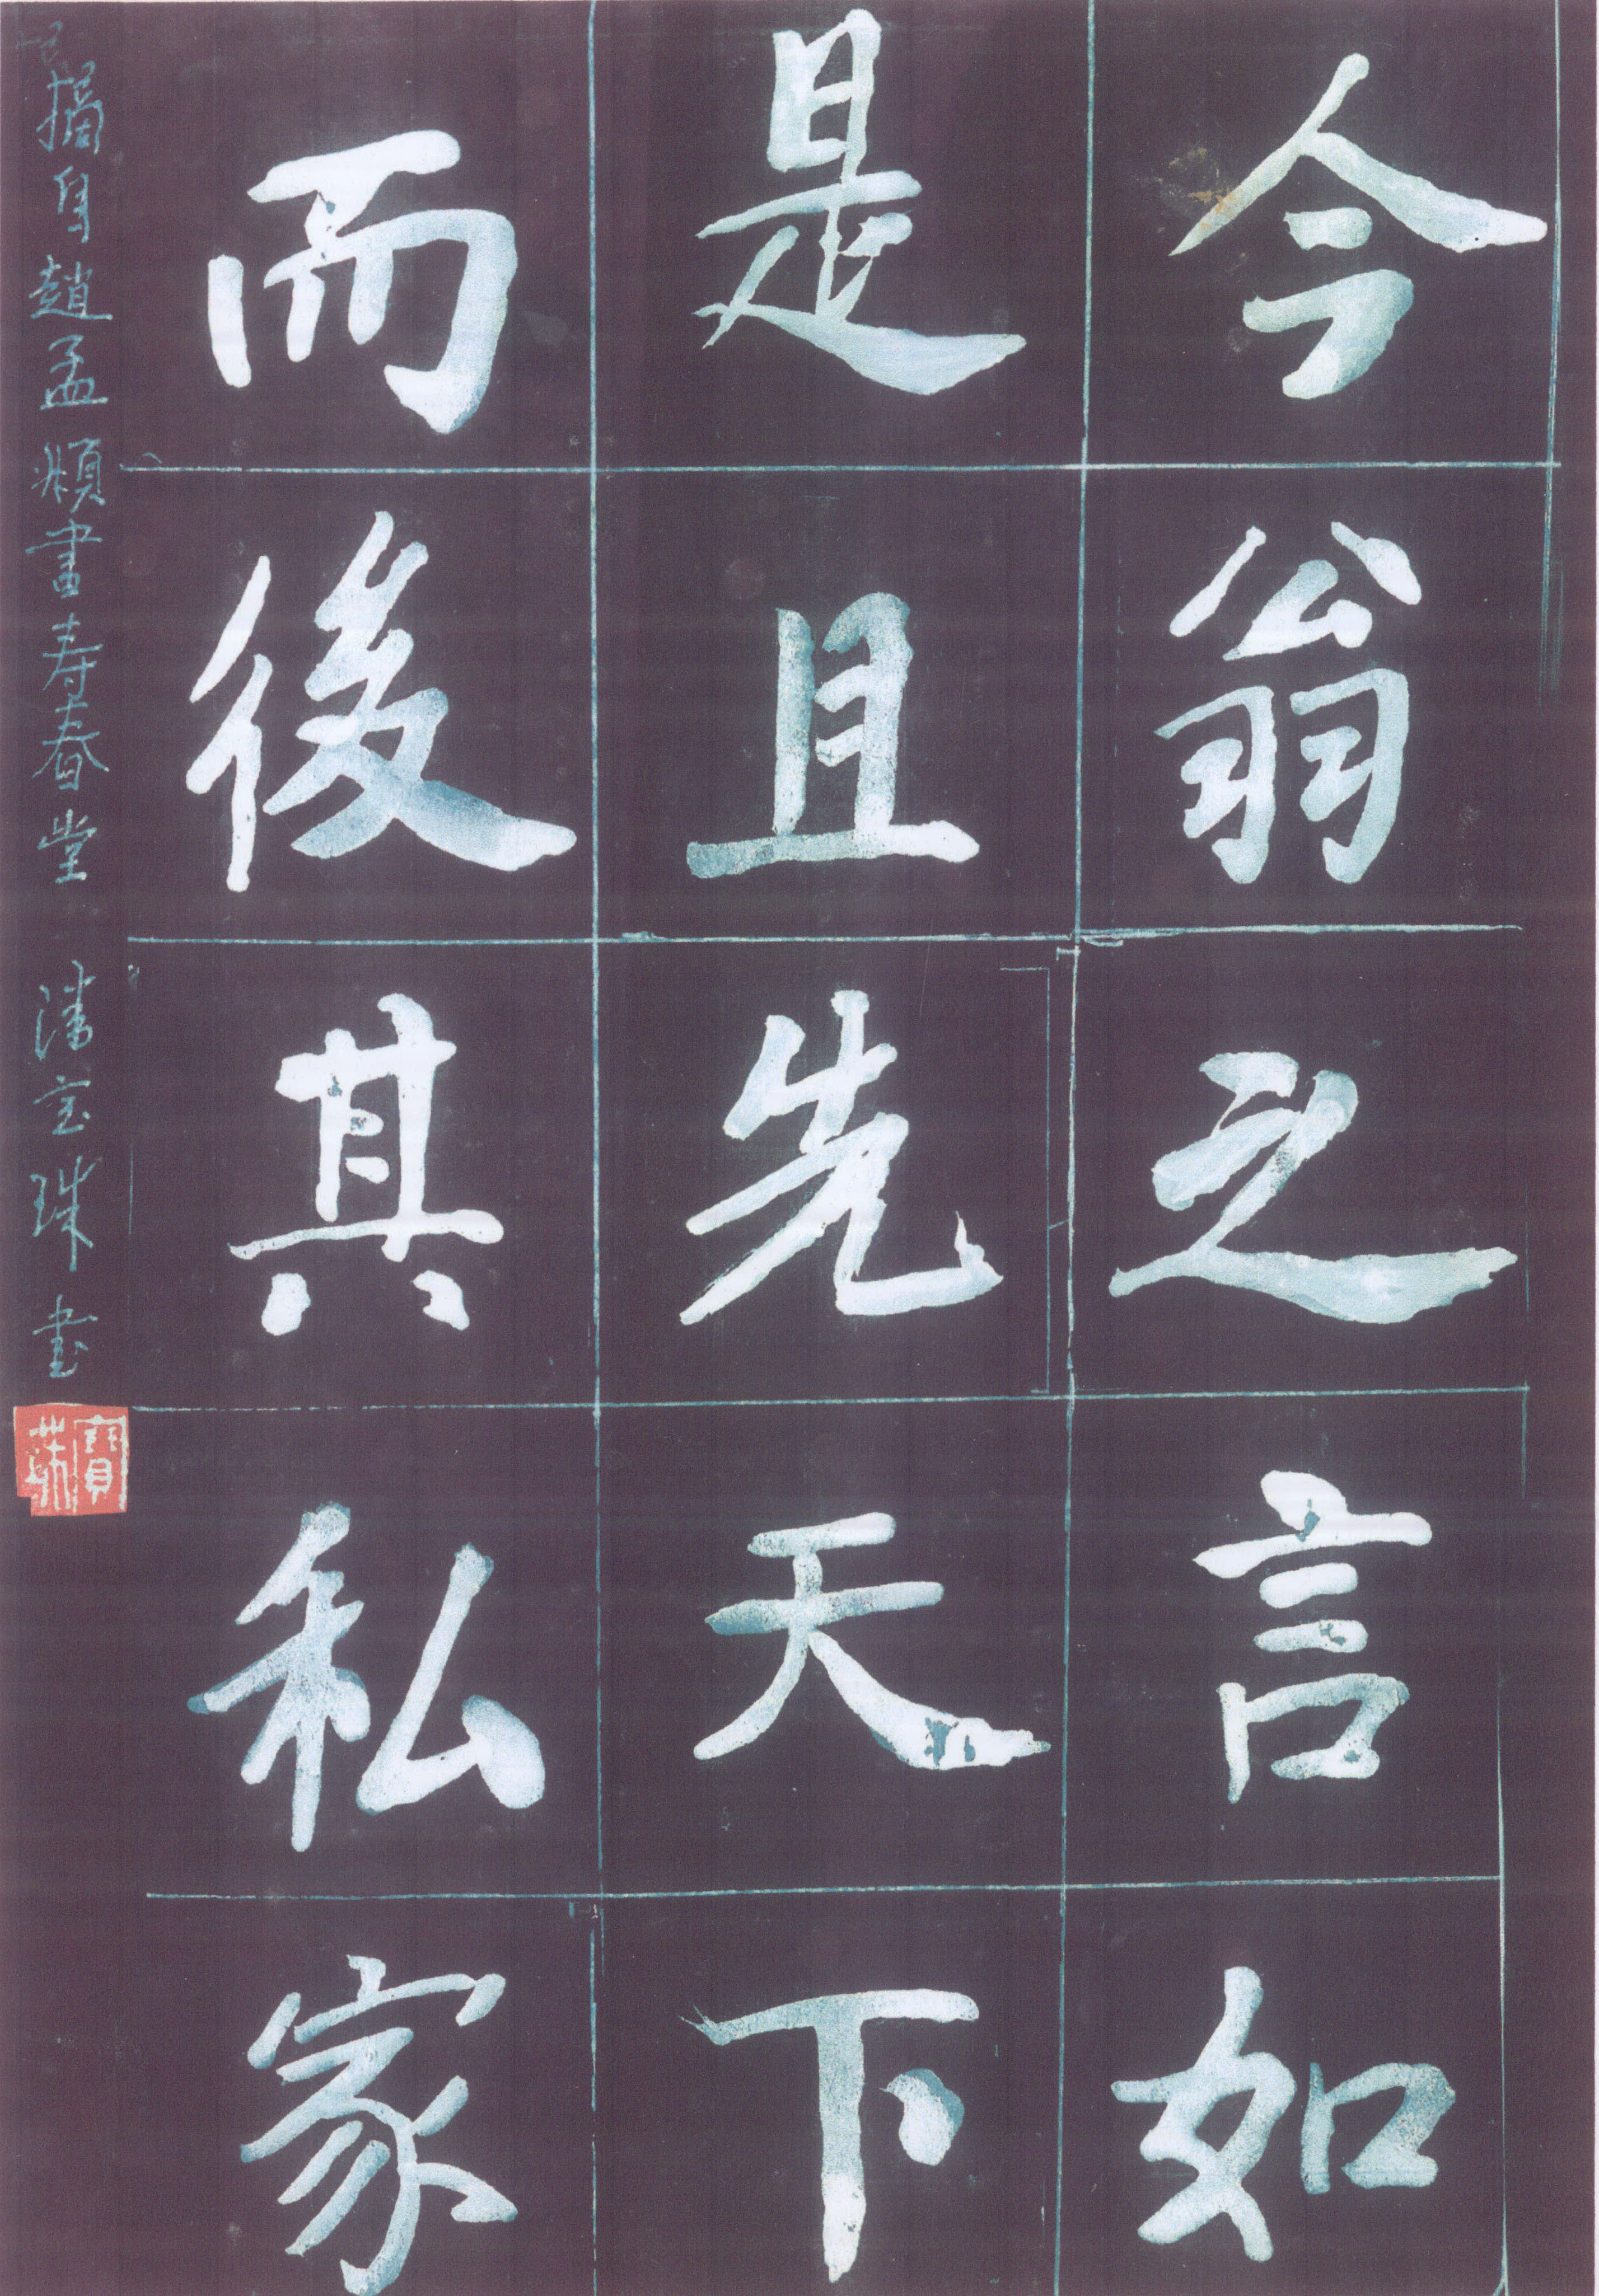 今翁之言如
是且先天下
而後其私家
摘自趙孟頫書寿春堂 潘宝珠書
寶珠